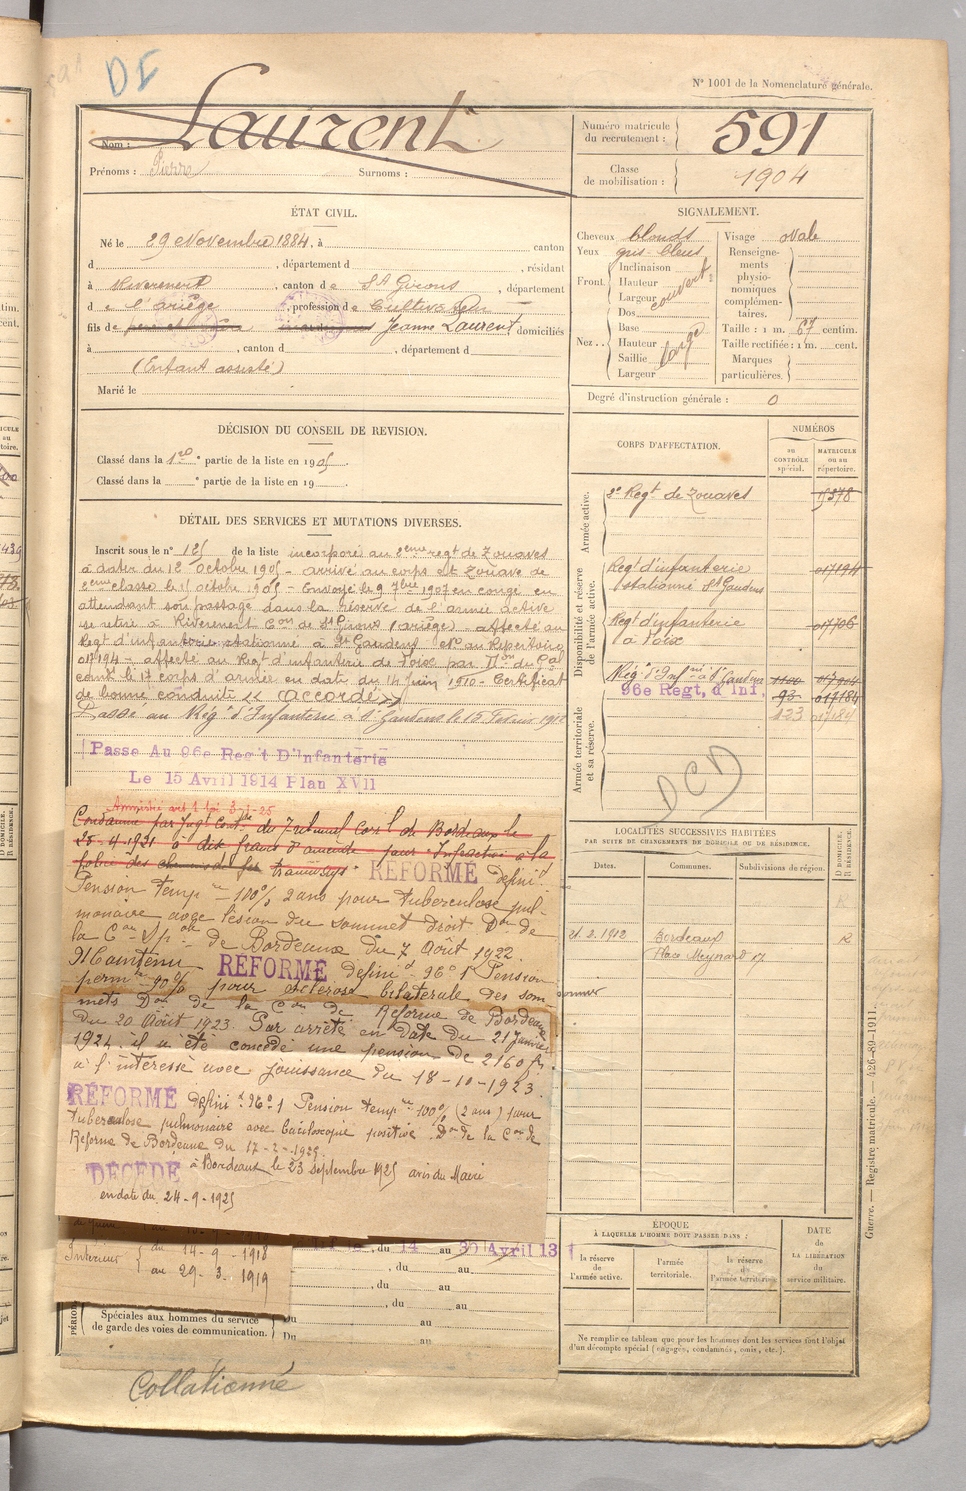 DI
N° 1001 de la Nomenclature générale.
Nom : Laurent
Prénoms : Pierre Surnoms :
Numéro matricule du recrutement : 591
Classe de mobilisation : 1904
ÉTAT CIVIL.
Né le 29 Novembre 1884, à canton
d , département d , résidant
à Riverenert , canton de St Girons , département
de l'ariège , profession de Cultivateur
fils de Jeanne Laurent domiciliés
à , canton d , département d
(Enfant assisté)
Marié le
SIGNALEMENT.
Cheveux blonds
Yeux gris-bleus
Front. Inclinaison
Hauteur
Largeur
couvert
Nez .. Dos
Base
Hauteur
Saillie
Largeur
large
Visage ovale
Renseigne-
ments
physio-
nomiques
complémen-
taires.
Taille : 1 m. 67 centim.
Taille rectifiée : 1 m. cent.
Marques
particulières.
Degré d'instruction générale : 0
DÉCISION DU CONSEIL DE REVISION.
Classé dans la 1re partie de la liste en 1905.
Classé dans la e partie de la liste en 19 .
DÉTAIL DES SERVICES ET MUTATIONS DIVERSES.
Inscrit sous le n° 125 de la liste incorporé au 2eme regt de Zouaves
à dater du 12 octobre 1905 - arrivé au corps et Zouave de
2eme classe le 15 octobre 1905 - Envoyé le 9 7bre 1907 en congé en
attendant son passage dans la réserve de l'armée active
se retire à Riverenert Con de St Girons (ariège) - affecté au
Regt d'infanterie stationné à St Gaudens N° au Répertoire
017194 - affecté au Regt d'infanterie de Foix par Don du Gal
comt le 17 corps d'armée en date du 14 juin 1910 - Certificat
de bonne conduite « accordé »
Passé au Rég t d'Infanterie à St Gaudens le 15 Février 1912
Passe Au 96e Reg't D'Infanterie
Le 15 Avril 1914 Plan XVII
CORPS D'AFFECTATION.
NUMÉROS
au
CONTRÔLE
spécial.
MATRICULE
ou au
répertoire.
Armée active.
2e Regt de Zouaves 15378
Disponibilité et réserve
de l'armée active.
Regt d'infanterie 017194
stationné St Gaudens
Regt d'infanterie 017706
à Foix
Rég t d'Infrie à St Gaudens
96e Regt, d Inf. 93 017184
Armée territoriale
et sa réserve.
DCD
Amnistie art 1 loi 3-1-25
Condamné par Jugt Contre du Tribunal Corel de Bordeaux le
25-4-1921 à dix francs d'amende pour Infraction à la
police des chemins de fer tramways RÉFORMÉ définif
Pension temp re 100% 2 ans pour tuberculose pul-
monaire avec lésion du sommet droit Don de
la Con Spale de Bordeaux du 7 Août 1922.
Maintenu RÉFORMÉ définif 96° 1 Pension
perm te 90% pour sclérose bilatérale des som
mets Don de la Con de Réforme de Bordeaux
du 20 Août 1923. Par arrêté en date du 21 Janvier
1924 il a été concédé une pension de 2160 fr.
à l'intéressé avec jouissance du 18-10-1923.
RÉFORMÉ définif 96° 1 Pension temp re 100% (2 ans) pour
tuberculose pulmonaire avec baciloscopie positive Don de la Con de
Réforme de Bordeaux du 17-2-1925.
DÉCÉDÉ à Bordeaux le 23 Septembre 1925 avis du Maire
en date du 24-9-1925
LOCALITÉS SUCCESSIVES HABITÉES
PAR SUITE DE CHANGEMENTS DE DOMICILE OU DE RÉSIDENCE.
Dates. Communes. Subdivisions de région.
D DOMICILE.
R RÉSIDENCE.
21.2.1912 Bordeaux R
Place Meynard 17
Intérieur du 14-9-1918
au 29-3-1919
, du 14 au 30 Avril 13
, du au
, du au
Spéciales aux hommes du service
de garde des voies de communication.
Du au
Du au
ÉPOQUE
À LAQUELLE L'HOMME DOIT PASSER DANS :
la réserve
de
l'armée active.
l'armée
territoriale.
la réserve
de
l'armée territoriale
DATE
de
LA LIBÉRATION
du
service militaire.
Ne remplir ce tableau que pour les hommes dont les services font l'objet
d'un décompte spécial (engagés, condamnés, omis, etc.).
Guerre. — Registre matricule. — 426-89-1911.
Collationné